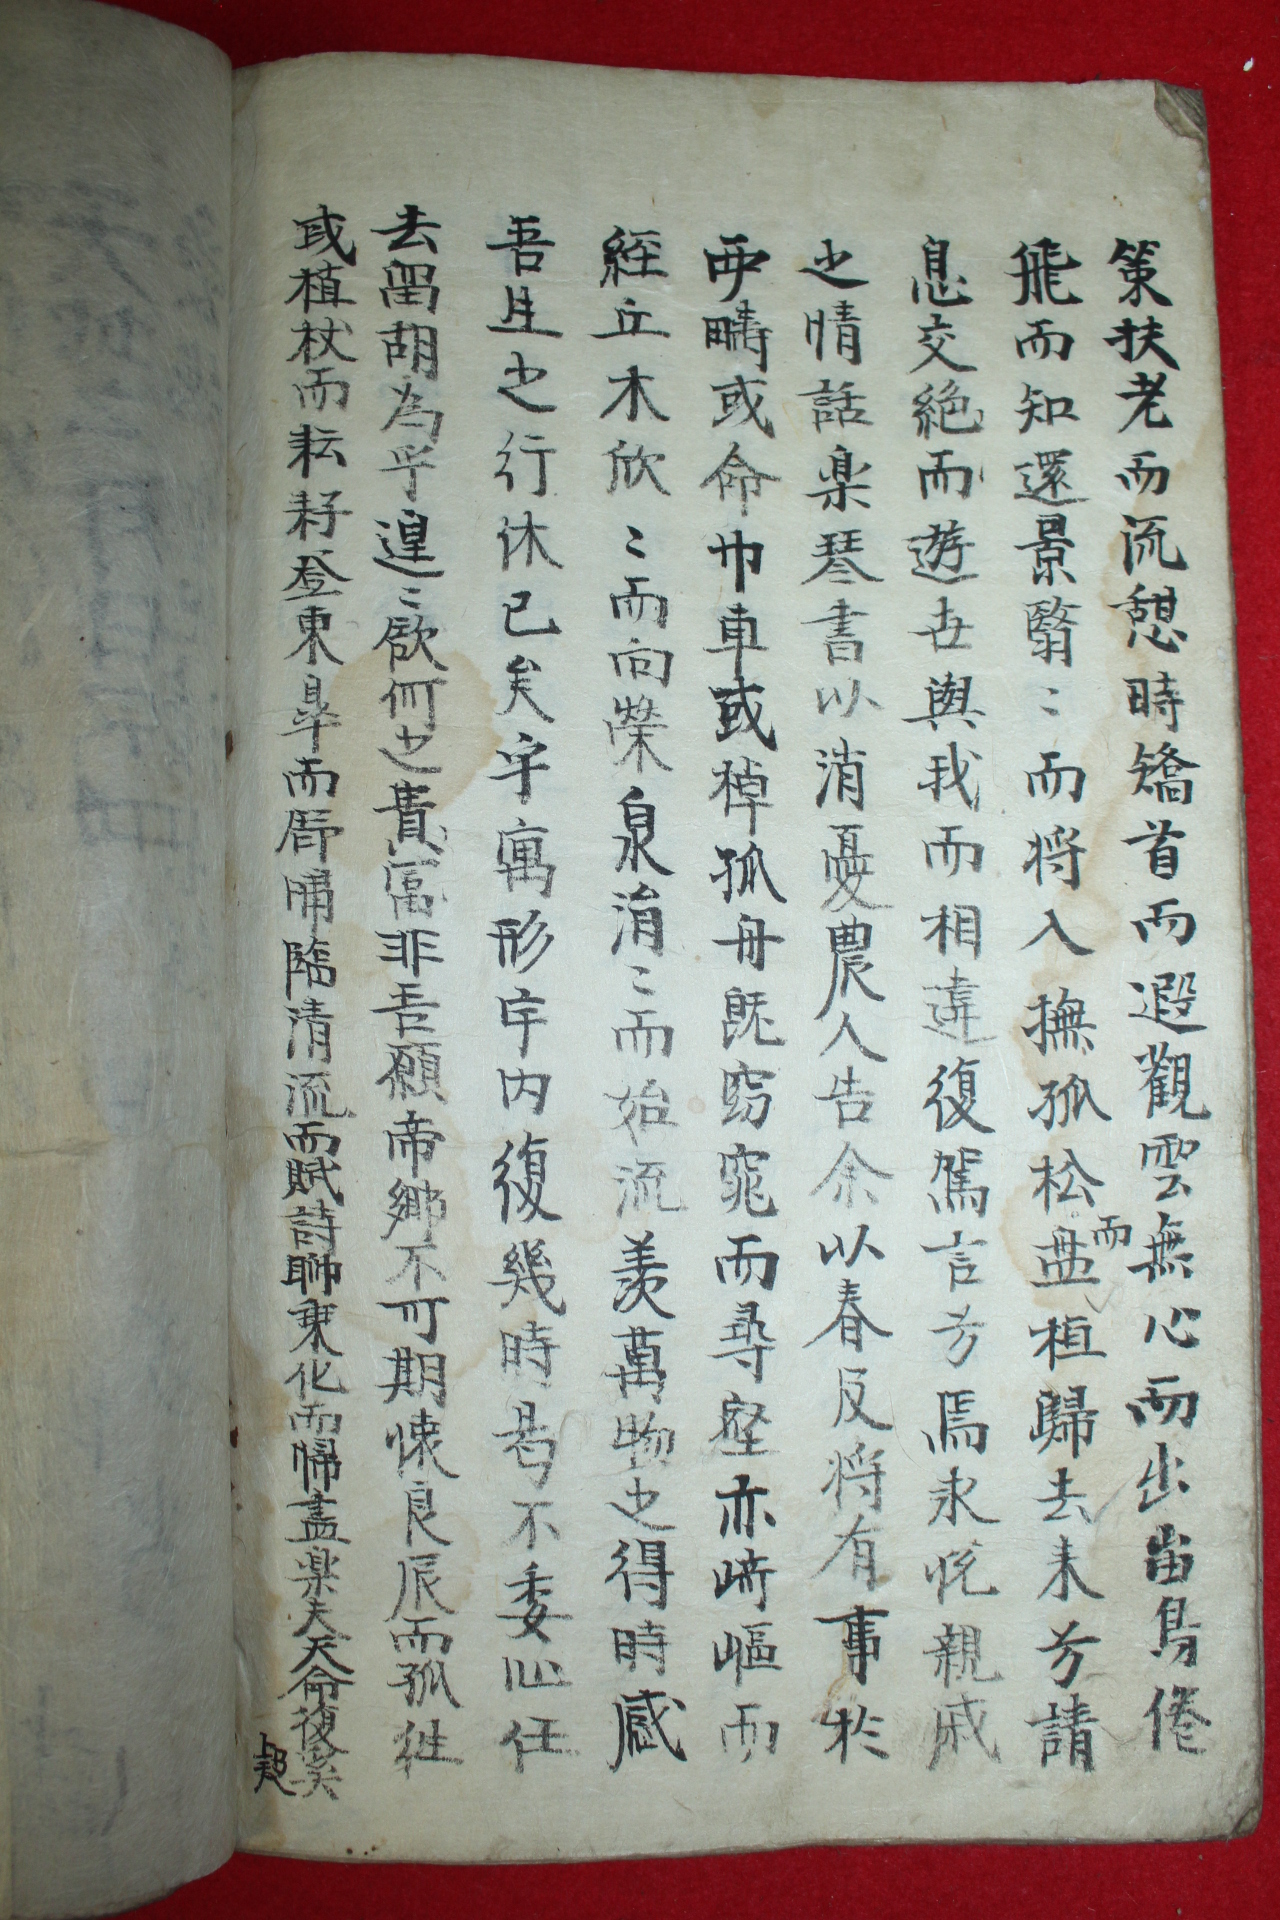 策扶老而流憩時矯首而遐觀雲無心而出岫鳥倦
飛而知還景翳〻而將入撫孤松而盤桓歸去来兮請
息交絶而遊世與我而相違復駕言兮焉求悅親戚
之情話楽琴書以消憂農人告余以春及將有事於
西疇或命巾車或棹孤舟旣窈窕而尋壑亦崎嶇而
經丘木欣〻而向榮泉涓〻而始流羨萬物之得時感
吾生之行休已矣乎寓形宇内復幾時曷不委心任
去留胡為乎遑〻欲何之貴富非吾願帝鄉不可期懷良辰而孤往
或植杖而耘耔登東皐而舒嘯臨清流而賦詩聊乗化而帰盡楽夫天命復奚
疑